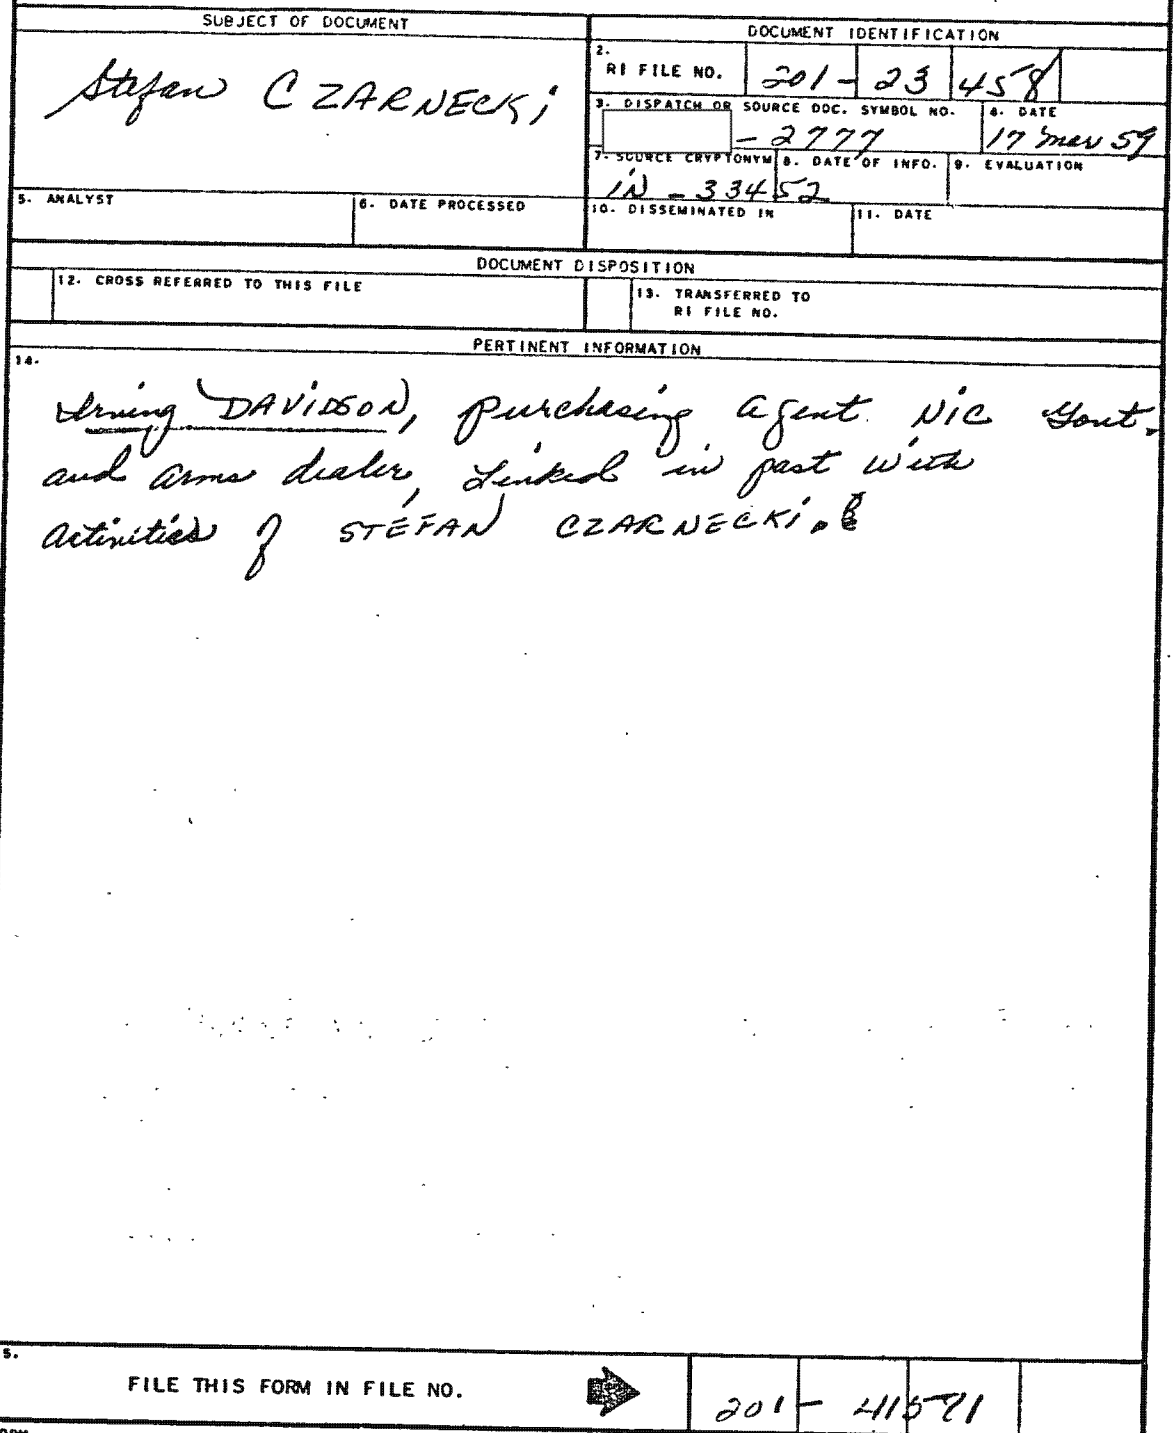 SUBJECT OF DOCUMENT
Stefan CZARNECKI
DOCUMENT IDENTIFICATION
2.
RI FILE NO. 201- 23 458
3. DISPATCH OR SOURCE DOC. SYMBOL NO.
-2777
4. DATE
17 Mar 59
7. SOURCE CRYPTONYM
8. DATE OF INFO.
9. EVALUATION
IN - 33452
5. ANALYST
6. DATE PROCESSED
10. DISSEMINATED IN
11. DATE
DOCUMENT DISPOSITION
12. CROSS REFERRED TO THIS FILE
13. TRANSFERRED TO
RI FILE NO.
PERTINENT INFORMATION
14.
Irving DAVIDSON, purchasing agent NIC Govt.
and arms dealer, Linked in past with
activities of STEFAN CZARNECKI.
5.
FILE THIS FORM IN FILE NO.
201- 41571